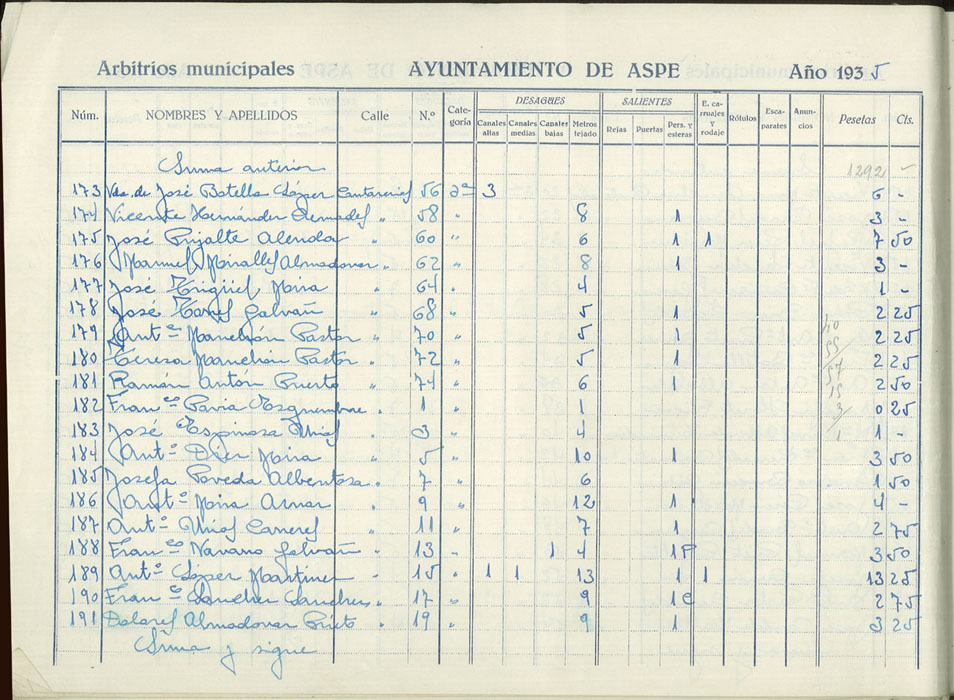 Arbitrios municipales AYUNTAMIENTO DE ASPE Año 1935
Núm. NOMBRES Y APELLIDOS Calle N.º Categoría DESAGÜES Canales altas Canales medias Canales bajas Metros tejado SALIENTES Rejas Puertas Pers. y esteras E. carruajes y rodaje Rótulos Escaparates Anuncios Pesetas Cts.
Suma anterior 1292 -
173 Vda. de José Botella López Cantarerias 56 2ª 3 6 -
174 Vicente Hernández " 58 " 8 1 3 -
175 José Alenda " 60 " 6 1 1 7 50
176 Manuel Miralles Almodovar " 62 " 8 1 3 -
177 José Mira " 64 " 4 1 -
178 José Galvañ " 68 " 5 1 2 25
179 Antº Manchón Pastor " 70 " 5 1 2 25
180 Teresa Manchón Pastor " 72 " 5 1 2 25
181 Ramón Antón Puerto " 74 " 6 1 2 50
182 Franco Pavia " 1 " 1 0 25
183 José Espinosa " 3 " 4 1 -
184 Antº Mira " 5 " 10 1 3 50
185 Josefa Poveda Albentosa " 7 " 6 1 50
186 Antº Mira Aznar " 9 " 12 1 4 -
187 Antº " 11 " 7 1 2 75
188 Franco Navarro Galvañ " 13 " 1 4 1P 3 50
189 Antº López Martinez " 15 " 1 1 13 1 1 13 25
190 Franco Sanchez Sanchez " 17 " 9 1C 2 75
191 Dolores Almodovar Prieto " 19 " 9 1 3 25
Suma y sigue